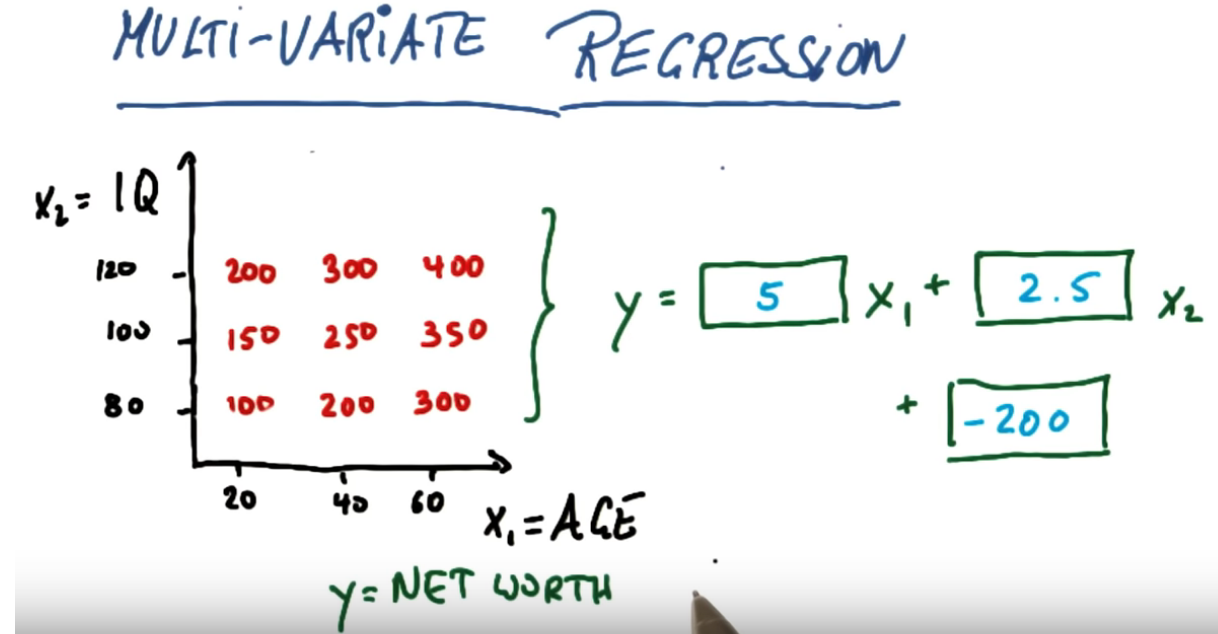 MULTI-VARIATE REGRESSION
x₂ = IQ
120 200 300 400
100 150 250 350
80 100 200 300
20 40 60
x₁ = AGE
y = NET WORTH
y = 5 x₁ + 2.5 x₂
+ -200